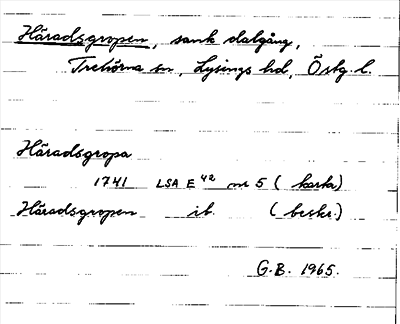 Häradsgropen, sank dalgång,
Trehörna sn, Lysings hd, Östg. l.
Häradsgropa
1741 LSA E 42 nr 5 (karta)
Häradsgropen ib. (beskr.)
G.B. 1965.